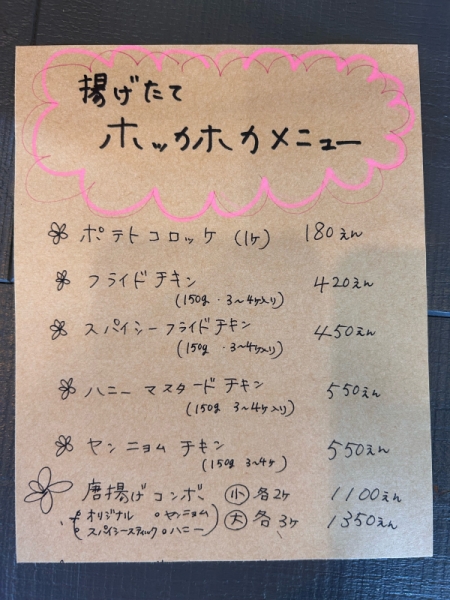 揚げたて
ホッカホカメニュー
ポテトコロッケ (1ケ) 180えん
フライドチキン 420えん
(150g・3〜4ケ入り)
スパイシーフライドチキン 450えん
(150g・3〜4ケ入り)
ハニーマスタードチキン 550えん
(150g 3〜4ケ入り)
ヤンニョムチキン 550えん
(150g 3〜4ケ)
唐揚げコンボ 小 各2ケ 1100えん
(オリジナル ヤンニョム 大 各3ケ 1350えん
スパイシースティック ハニー)